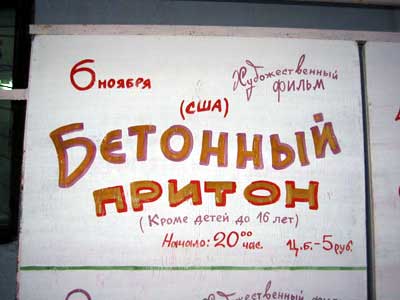 6 ноября
Художественный
фильм
(США)
Бетонный
притон
(Кроме детей до 16 лет)
Начало: 20⁰⁰ час. Ц.б.-5 руб.
Художественный